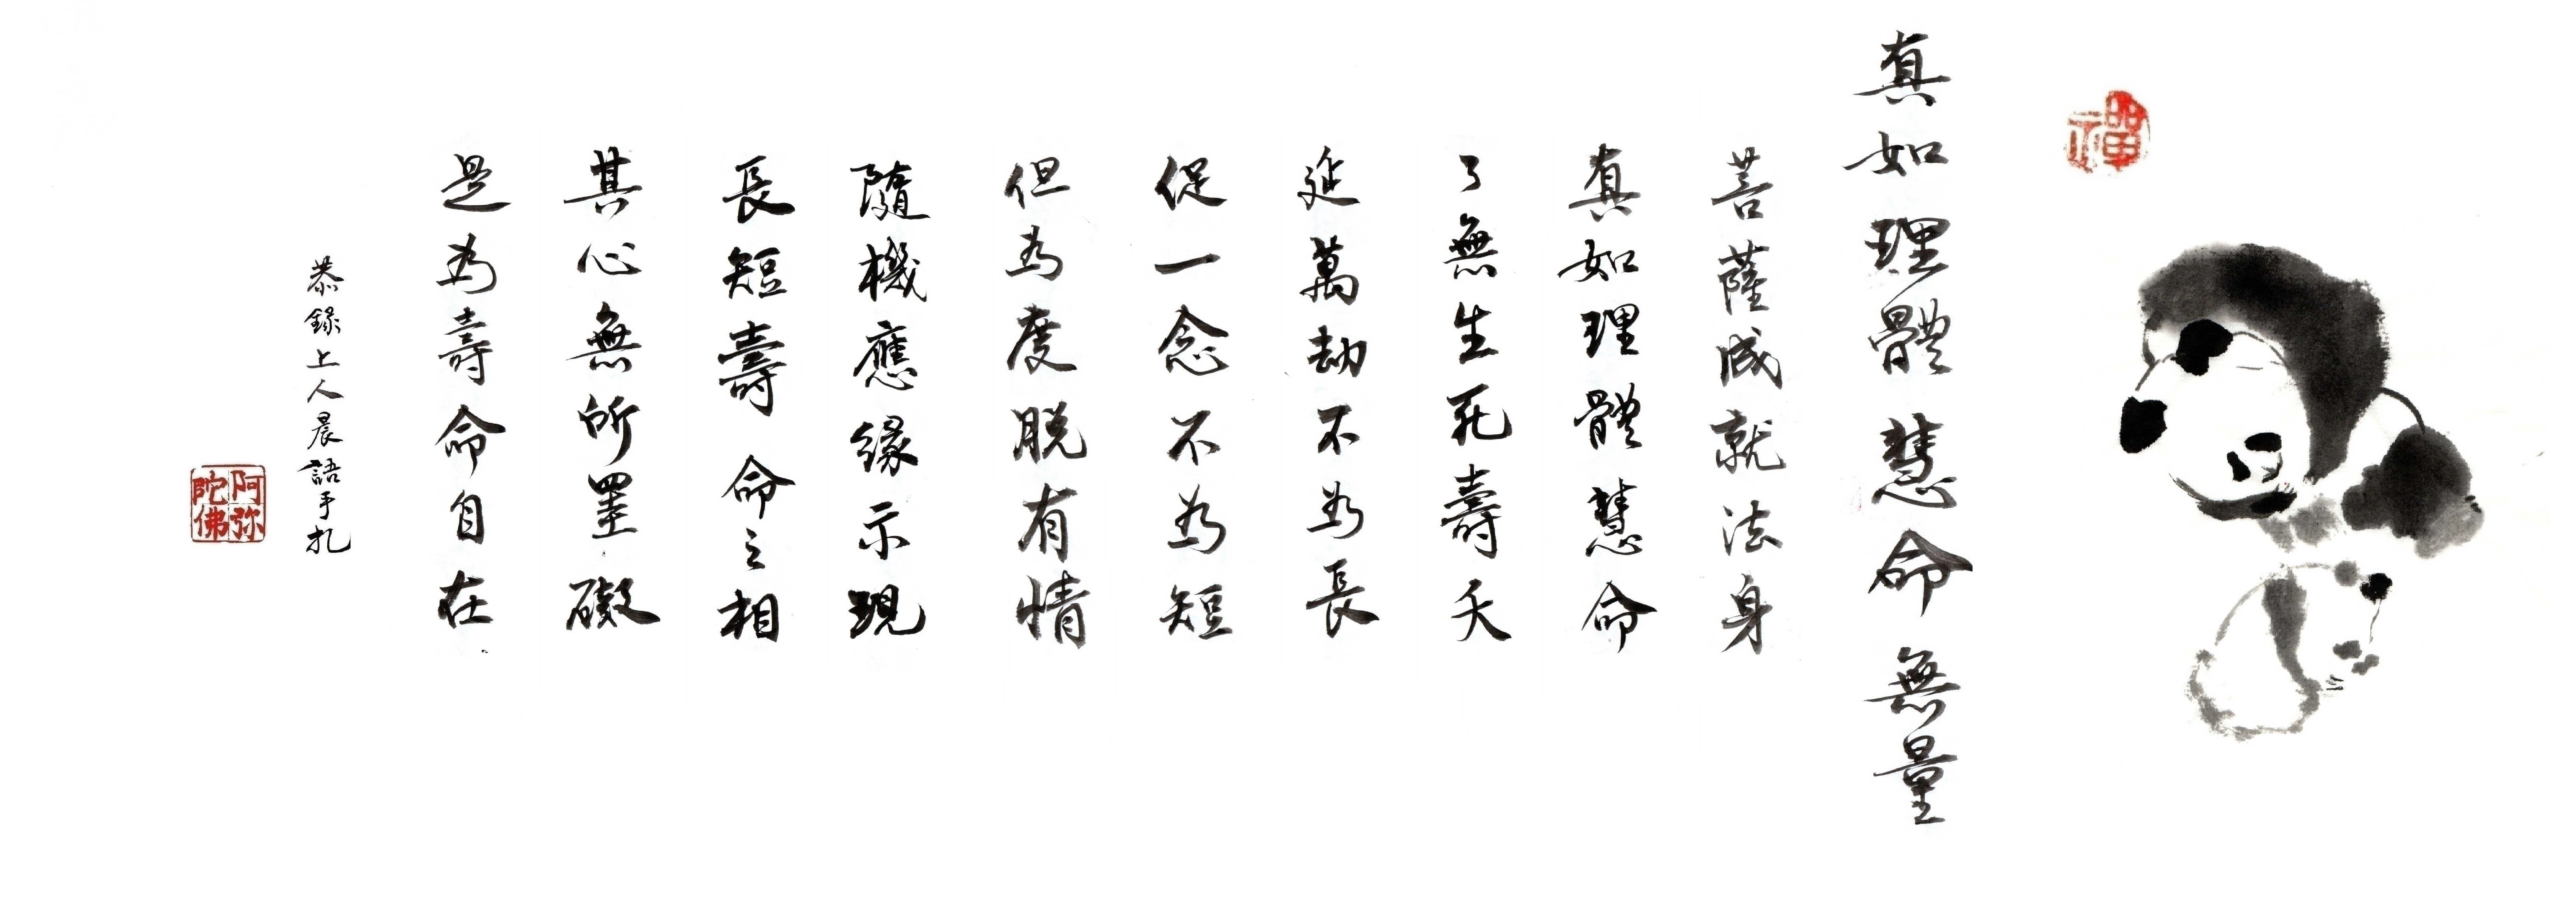 禪
真如理體慧命無量
菩薩成就法身
真如理體慧命
了無生死壽夭
延萬劫不為長
促一念不為短
但為度脫有情
隨機應緣示現
長短壽命之相
其心無所罣礙
是為壽命自在
恭錄上人晨語手札
阿弥陀佛